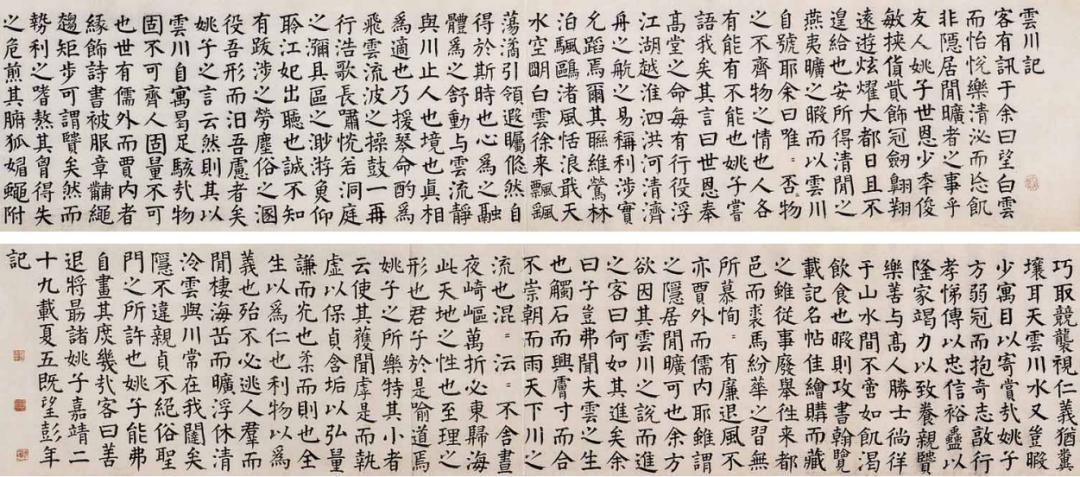 雲川記
客有訊于余曰望白雲
而怡悅樂清泌而忘飢
非隱居閒曠者之事乎
友人姚子世恩少季俊
敏挾貨貲飾冠劒翱翔
遠遊炫燿大都日且不
遑給也安所得清閒之
燕夷曠之暇而以雲川
自號耶余曰唯〻否物
之不齊物之情也人各
有能有不能也姚子嘗
語我矣其言曰世恩奉
高堂之命每有行役浮
江湖越淮泗洪河清濟
舟之航之易稱利涉實
允蹈焉爾其聯維鶯林
泊颿鷗渚風恬浪戢天
水空明白雲徐来飄颻
蕩潏引領遐矚倏然自
得於斯時也心為之融
體為之舒動與雲流靜
與川止人也境也真相
為適也乃援琴命酌為
飛雲流波之操鼓一再
行浩歌長嘯怳若洞庭
之瀰具區之渺游魚仰
聆江妃出聽也誠不知
有跋涉之勞塵俗之溷
役吾形而汩吾慮者矣
姚子之言云然則其以
雲川自寓曷足駭哉物
固不可齊人固量不可
也世有儒外而賈内者
緣飾詩書被服章黼繩
趨矩步可謂贒矣然而
勢利之嗜熬其胷得失
之危煎其腑狐媚蠅附
巧取競襲視仁義猶糞
壤耳天雲川水又豈暇
少寓目以寄賞哉姚子
方弱冠而抱奇志敦行
孝悌傅以忠信裕蠱以
隆家竭力以致養親贒
樂善与高人勝士徜徉
于山水間不啻如飢渴
飲食也暇則攻書翰覽
載記名帖佳繪購而藏
之雖從事廢舉往来都
邑而裘馬紛華之習無
所慕恂〻有廉退風不
亦賈外而儒内耶雖謂
之隱居閒曠可也余方
欲因其雲川之說而進
之客曰何如其進矣余
曰子豈弗聞夫雲之生
也觸石而興膚寸而合
不崇朝而雨天下川之
流也混〻沄〻不舍晝
夜崎嶇萬折必東歸海
此天地之性也至理之
形也君子於是喻道焉
姚子之所樂特其小者
云使其獲聞虖是而執
虚以保貞含垢以弘量
謙而光也柔而則也全
生以為仁也利物以為
義也殆不必逃人羣而
閒棲海岳而曠浮休清
泠雲與川常在我闥矣
隱不違親貞不絕俗聖
門之所許也姚子能弗
自畫其庶幾哉客曰善
退將最諸姚子嘉靖二
十九載夏五既望彭年
記